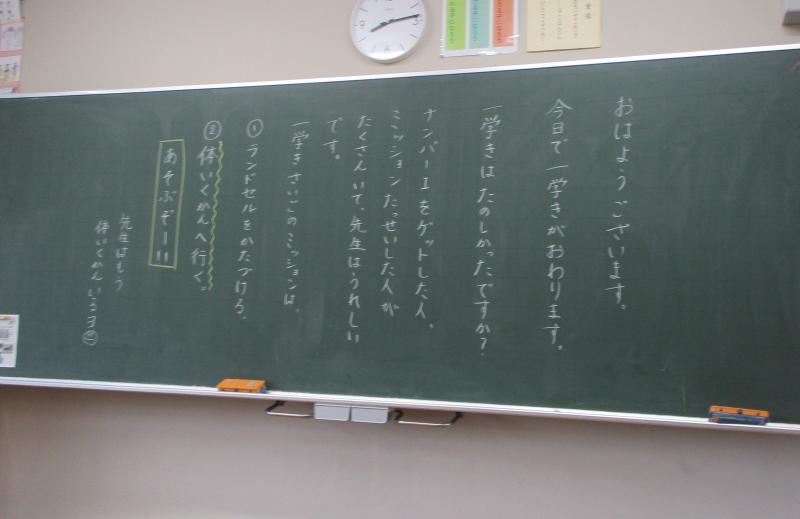 おはようございます。
今日で一学きがおわります。
一学きはたのしかったですか?
ナンバー1をゲットした人、
ミッションたっせいした人が
たくさんいて、先生はうれしい
です。
一学きさいごのミッションは、
① ランドセルをかたづける。
② 体いくかんへ行く。
あそぶぞー!!
先生はもう
体いくかんいるヨ